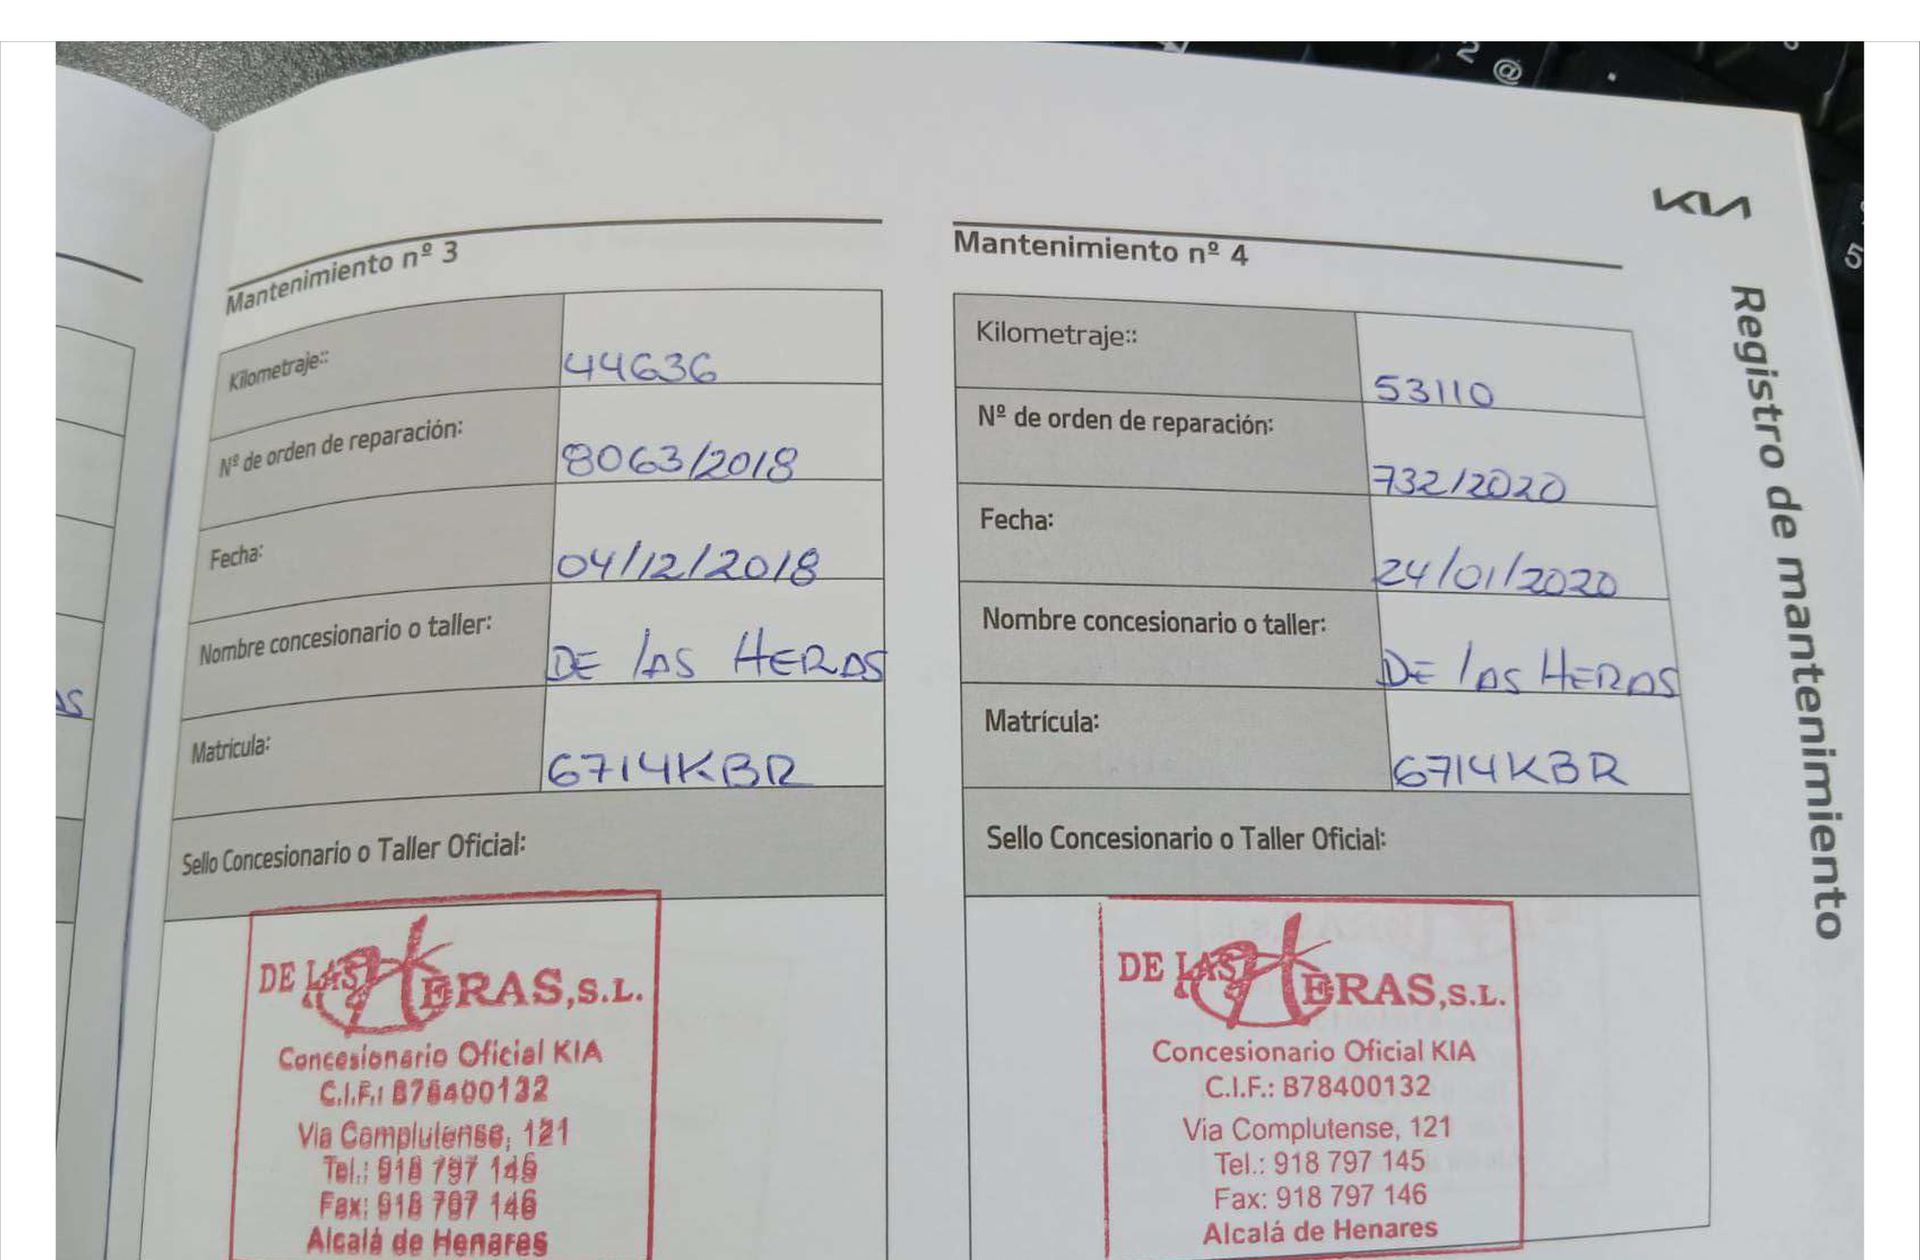 2 @
5
KIA
Registro de mantenimiento
Mantenimiento nº 3
Kilometraje::
44636
Nº de orden de reparación:
8063/2018
Fecha:
04/12/2018
Nombre concesionario o taller:
DE lAS HERAS
Matrícula:
6714KBR
Sello Concesionario o Taller Oficial:
DE LAS HERAS, S.L.
Concesionario Oficial KIA
C.I.F.: B78400132
Via Complutense, 121
Tel.: 918 797 145
Fax: 918 797 146
Alcalá de Henares
Mantenimiento nº 4
Kilometraje::
53110
Nº de orden de reparación:
732/2020
Fecha:
24/01/2020
Nombre concesionario o taller:
DE lAS HERAS
Matrícula:
6714KBR
Sello Concesionario o Taller Oficial:
DE LAS HERAS, S.L.
Concesionario Oficial KIA
C.I.F.: B78400132
Via Complutense, 121
Tel.: 918 797 145
Fax: 918 797 146
Alcalá de Henares